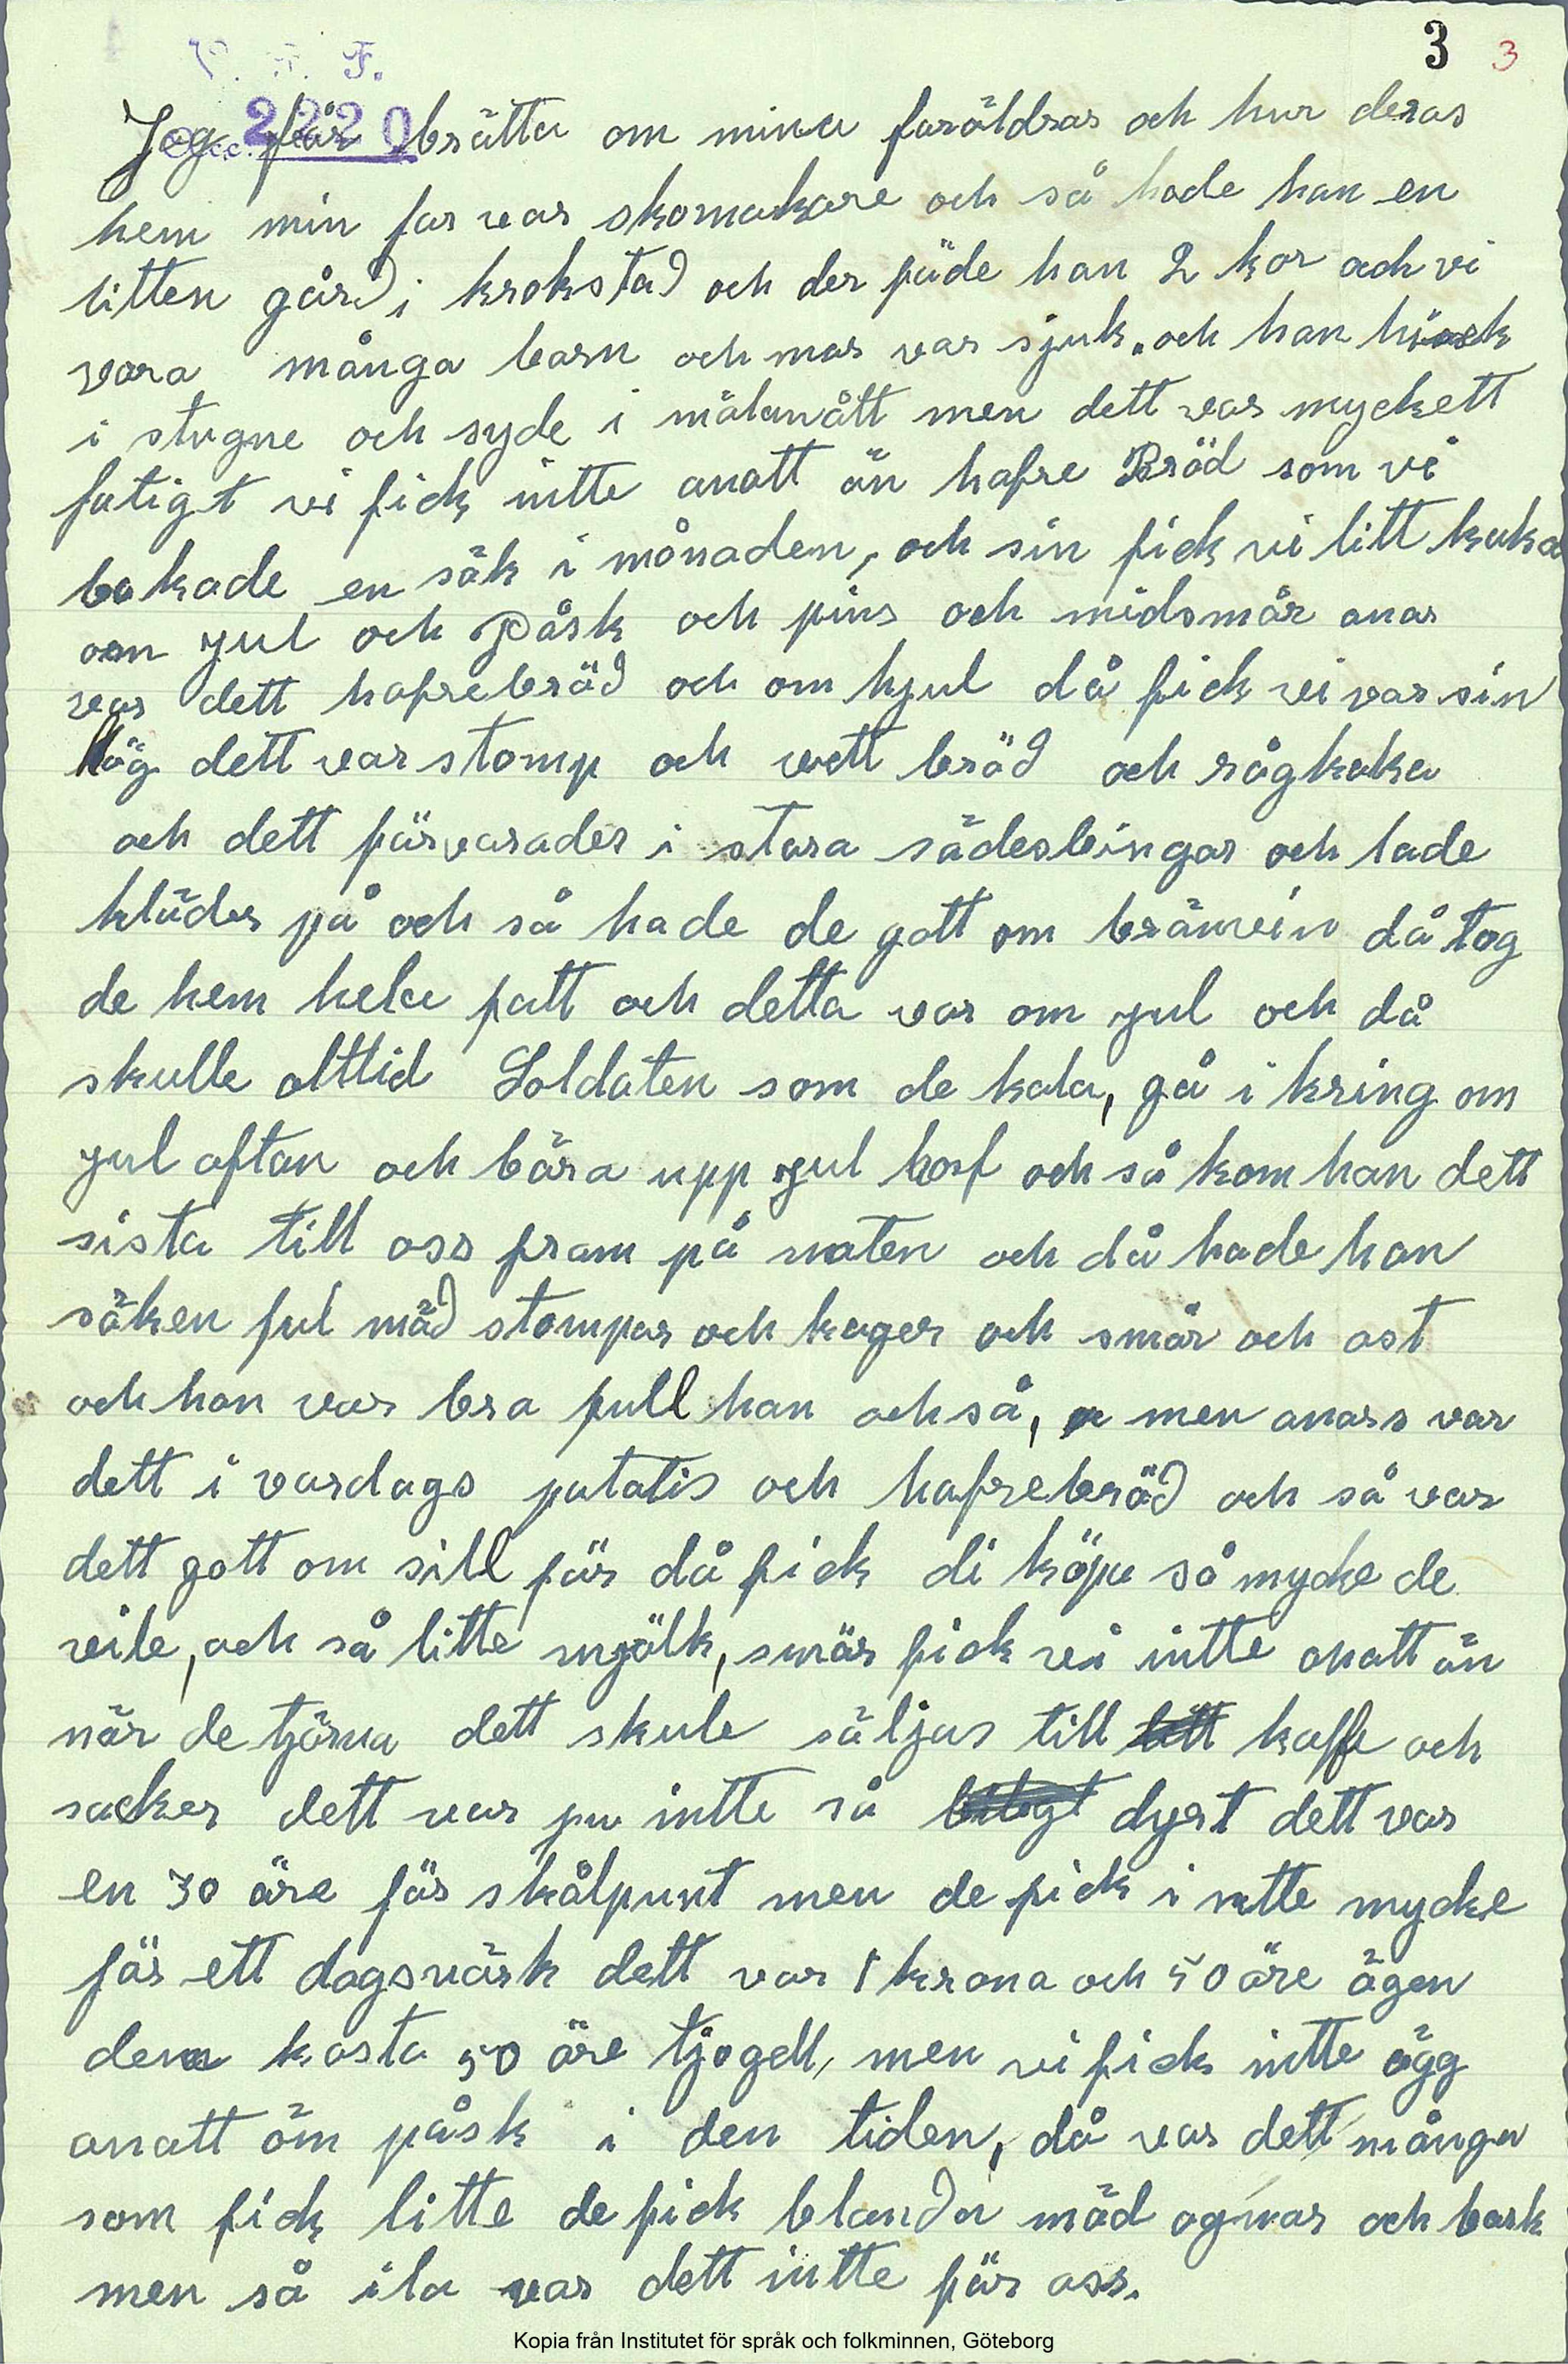 3 3
V. F. F.
Acc. 2220
Jag får brätta om mina faräldrar och hur deras
hem min far var skomakare och så hade han en
litten gård i krokstad och der födde han 2 kor och vi
vara många barn och mor var sjuk. och han
i stugne och syde i månnått men dett var myckett
fatigt vi fick intte anatt än hafre Bröd som vi
bakade en säk i månaden, och sin fick vi litt kaka
om jul och Påsk och pins och midsmår anar
var dett hafrebröd och om hjul då fick vi var sin
hög dett var stomp och vett bröd och rågkaka
och dett förvarades i stora sädesbingar och lade
kläder på och så hade de gott om bränvin då tog
de hem hela fatt och detta var om jul och då
skulle alttid Soldaten som de kala, gå i kring om
jul aftan och bära upp jul hosf och så kom han dett
sista till oss fram på naten och då hade han
säken ful mäd stompar och kager och smör och ost
och han var bra full han också, men anars var
dett i vardags patatis och hafrebröd och så var
dett gott om sill för då fick di köpa så mycke de
vile, och så litte mjölk, smör fick vi intte anatt än
när de tjörna dett skule säljas till kaffe och
sacker dett var ju intte så dyrt dett var
en 30 öre för skålpunt men de fick i ntte mycke
för ett dagsvärk dett var 1 krona och 50 öre ägen
dem kosta 50 öre tjogell, men vi fick intte ägg
anatt öm påsk i den tiden, då var dett många
som fick litte de fick blanda mäd agnar och bark
men så ila var dett intte för oss.
Kopia från Institutet för språk och folkminnen, Göteborg